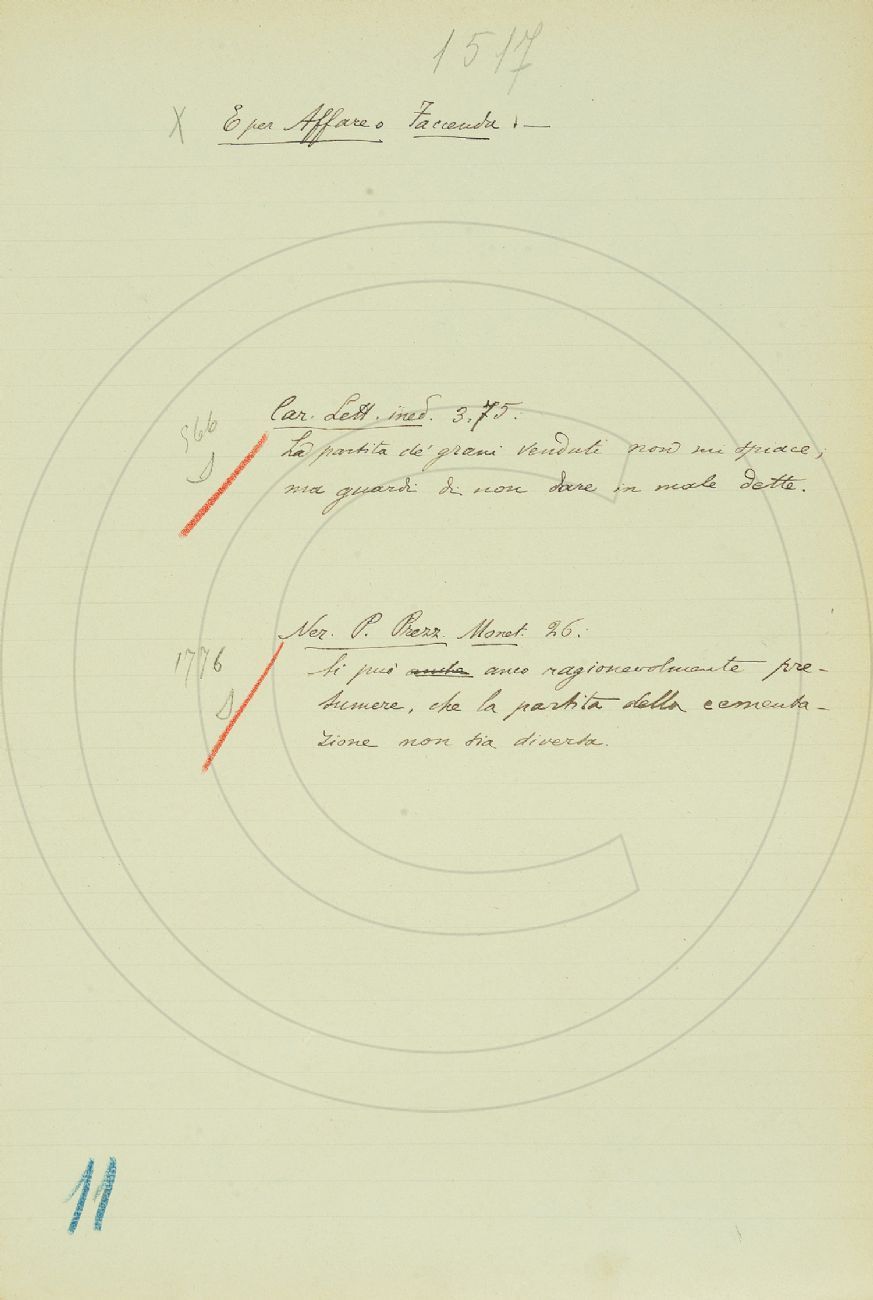 1517
X E per Affare o Faccenda : —
566
Car. Lett. ined. 3,75:
La partita de' grani venduti non mi spiace;
ma guardi di non dare in male dette.
1776
Ner. P. Prezz. Monet. 26:
Si può anche anco ragionevolmente pre-
sumere, che la partita della cementa-
zione non sia diversa.
11